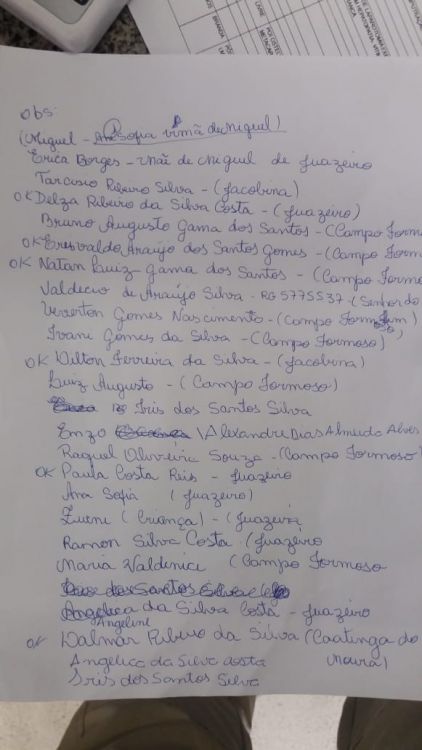 Obs:
(Miguel - Ana Sofia irmã de miguel)
Erica Borges - mãe de miguel de Juazeiro
Tarcisio Ribeiro Silva - (Jacobina)
OK Delza Ribeiro da Silva Costa - (Juazeiro)
Bruno Augusto Gama dos Santos - (Campo Form
OK Araújo dos Santos Gomes - (Campo Form
OK Natan Luiz gama dos Santos - (Campo Formo
Valdecio de Araújo Silva - RG 5775537 - (Senhor do
Weverton Gomes Nascimento - (Campo Form
Ivani Gomes da Silva - (Campo Formoso)
OK Dilton Ferreira da Silva - (Jacobina)
Luiz Augusto - (Campo Formoso)
Iris dos Santos Silva
Enzo Alexandre Dias Almeida Alves
Raquel Oliveira Souza - (Campo Formoso)
OK Paula Costa Reis - Juazeiro
Ana Sofia (Juazeiro)
(Criança) - (Juazeiro
Ramon Silva Costa - (Juazeiro
Maria Valdenice (Campo Formoso
dos Santos
Angelica da Silva Costa - Juazeiro
Angeline
OK Dalmar Ribeiro da Silva (Caatinga do
Moura)
Angelica da Silva costa
Iris dos Santos Silva